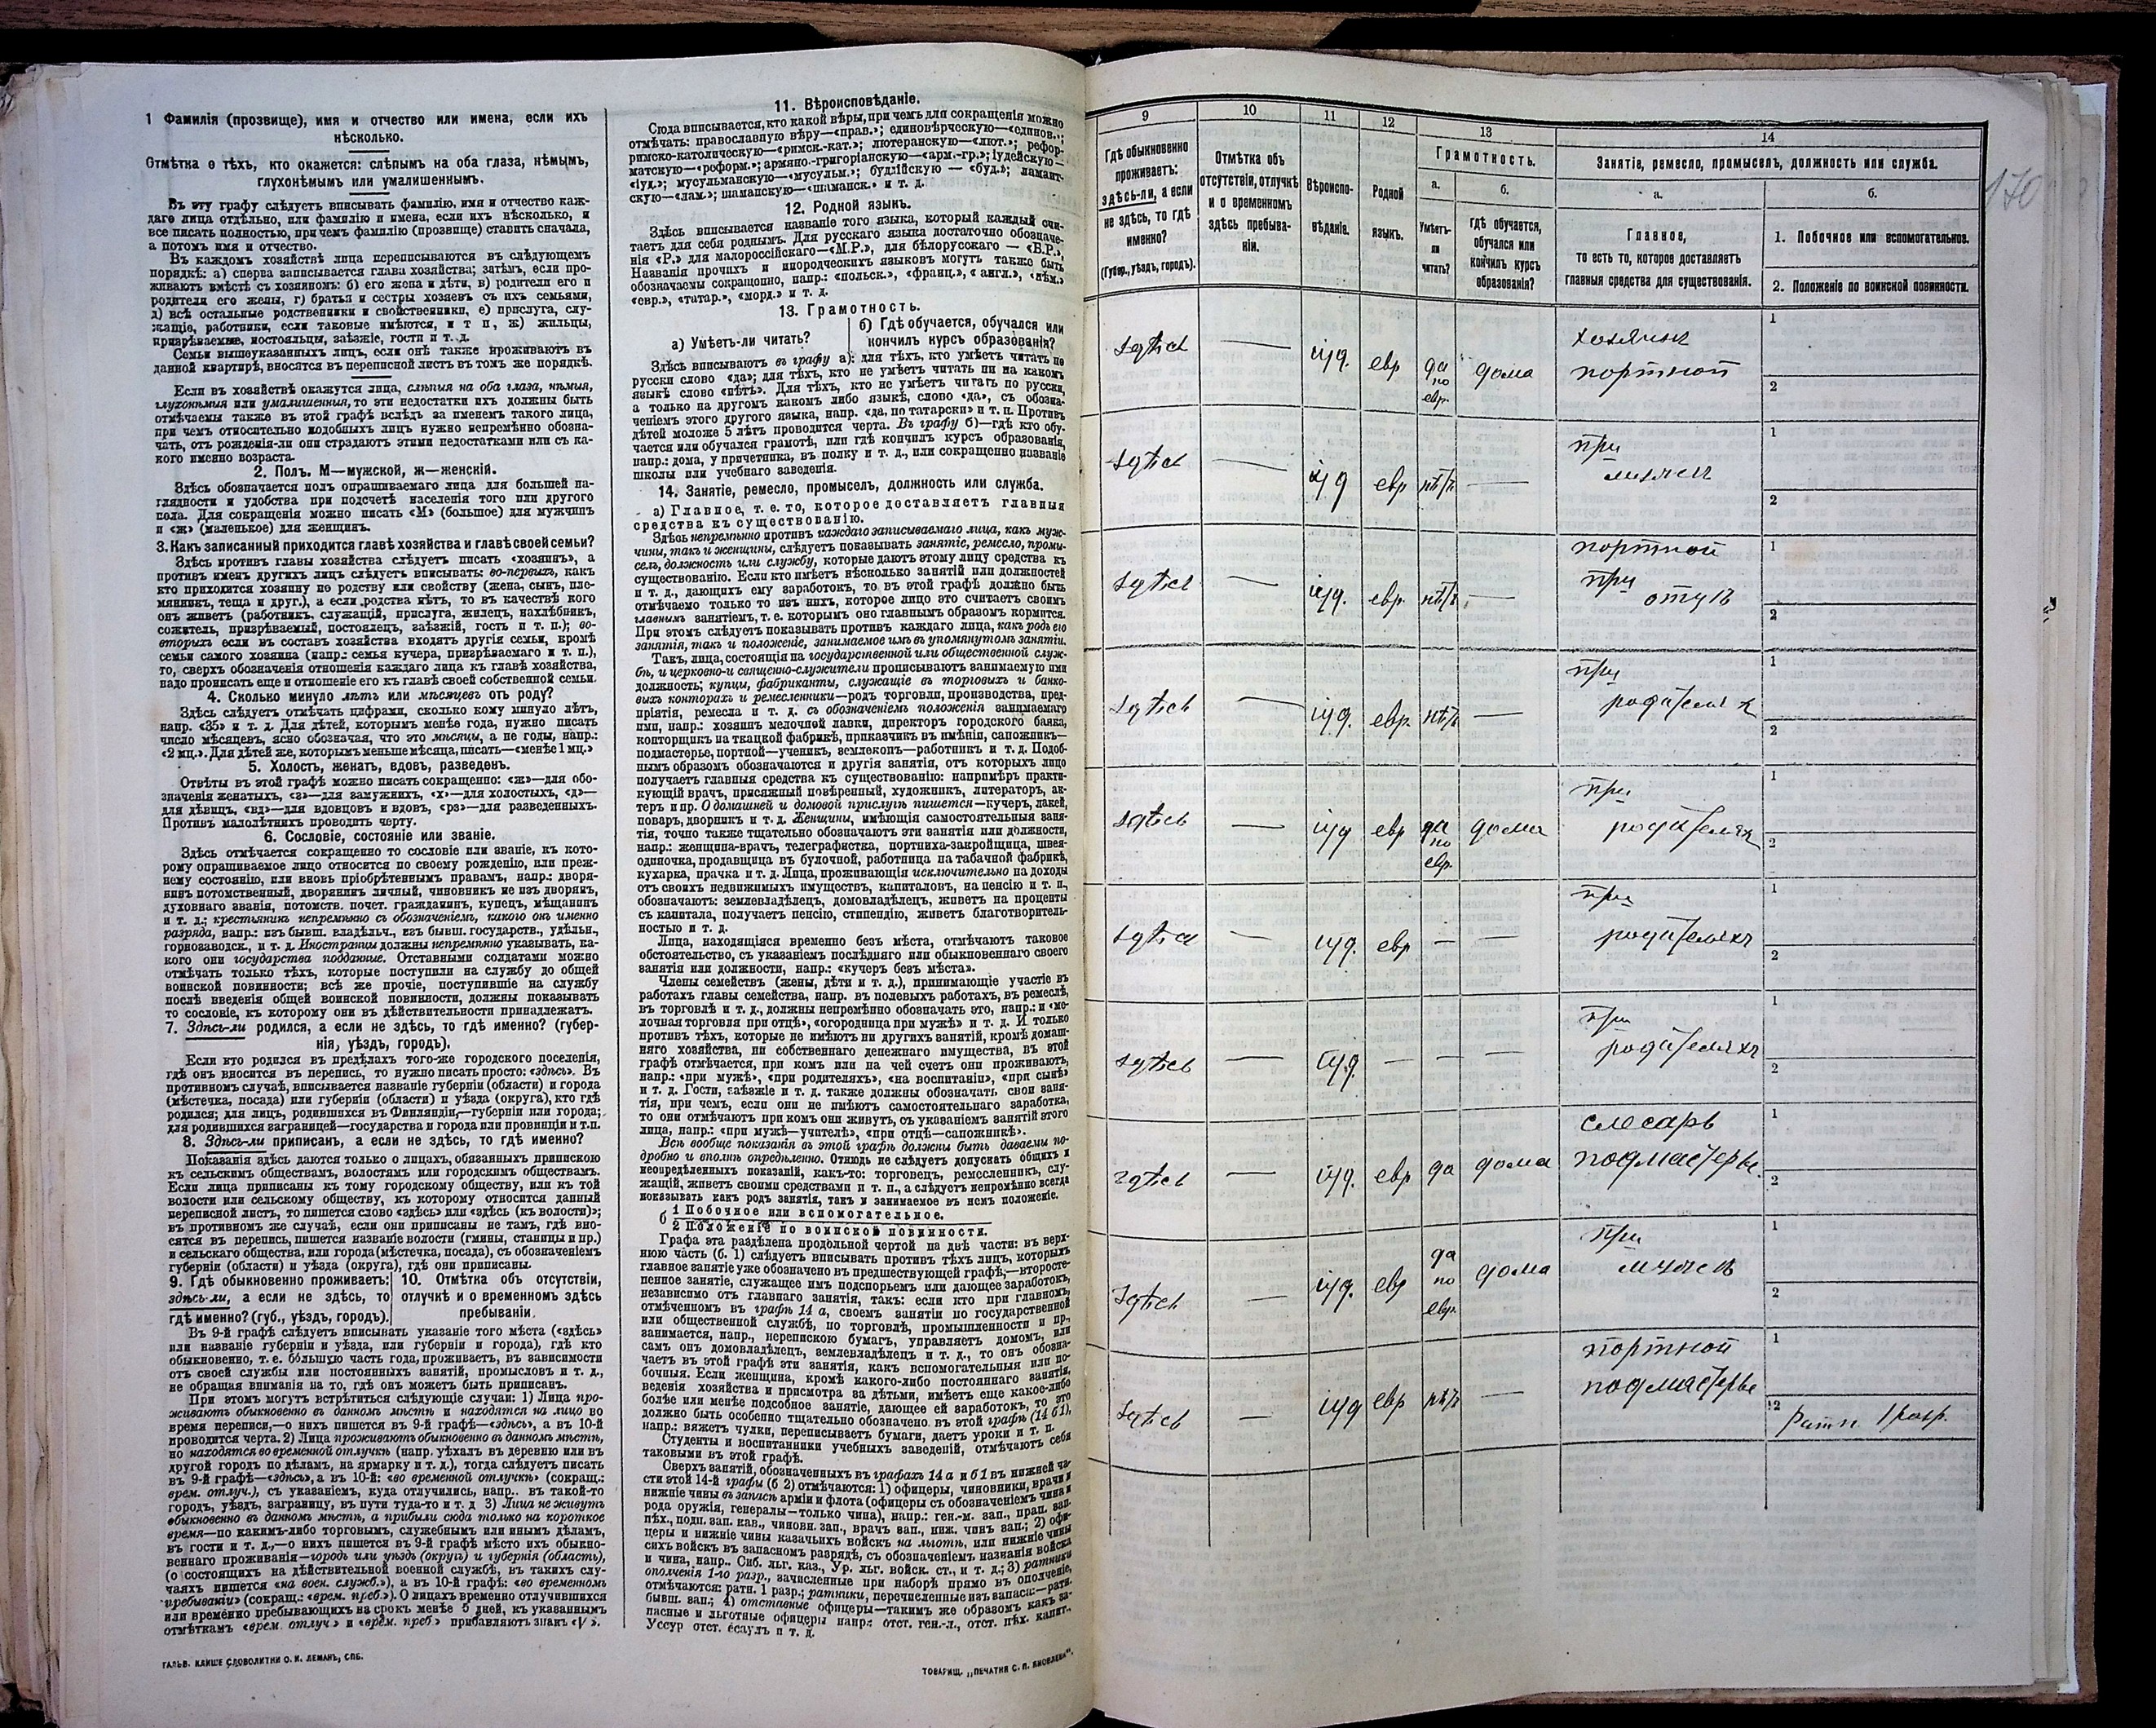 1 Фамилія (прозвище), имя и отчество или имена, если ихъ
нѣсколько.
Отмѣтка о тѣхъ, кто окажется: слѣпымъ на оба глаза, нѣмымъ,
глухонѣмымъ или умалишеннымъ.
Въ эту графу слѣдуетъ вписывать фамилію, имя и отчество каж-
даго лица отдѣльно, или фамилію и имена, если ихъ нѣсколько, и
все писать полностью, при чемъ фамилію (прозвище) ставить сначала,
а потомъ имя и отчество.
Въ каждомъ хозяйствѣ лица переписываются въ слѣдующемъ
порядкѣ: а) сперва записывается глава хозяйства; затѣмъ, если про-
живаютъ вмѣстѣ съ хозяиномъ: б) его жена и дѣти, в) родители его и
родители его жены, г) братья и сестры хозяевъ съ ихъ семьями,
д) всѣ остальные родственники и свойственники, е) прислуга, слу-
жащіе, работники, если таковые имѣются, и т п, ж) жильцы,
призрѣваемые, постояльцы, заѣзжіе, гости и т. д.
Семьи вышеуказанныхъ лицъ, если онѣ также проживаютъ въ
данной квартирѣ, вносятся въ переписной листъ въ томъ же порядкѣ.
Если въ хозяйствѣ окажутся лица, слѣпыя на оба глаза, нѣмыя,
глухонѣмыя или умалишенныя, то эти недостатки ихъ должны быть
отмѣчаемы также въ этой графѣ вслѣдъ за именемъ такого лица,
при чемъ относительно подобныхъ лицъ нужно непремѣнно обозна-
чать, отъ рожденія-ли они страдаютъ этими недостатками или съ ка-
кого именно возраста.
2. Полъ. М—мужской, ж—женскій.
Здѣсь обозначается полъ опрашиваемаго лица для большей на-
глядности и удобства при подсчетѣ населенія того или другого
пола. Для сокращенія можно писать «М» (большое) для мужчинъ
и «ж» (маленькое) для женщинъ.
3. Какъ записанный приходится главѣ хозяйства и главѣ своей семьи?
Здѣсь противъ главы хозяйства слѣдуетъ писать «хозяинъ», а
противъ именъ другихъ лицъ слѣдуетъ вписывать: во-первыхъ, какъ
кто приходится хозяину по родству или свойству (жена, сынъ, пле-
мянникъ, теща и друг.), а если родства нѣтъ, то въ качествѣ кого
онъ живетъ (работникъ, служащій, прислуга, жилецъ, нахлѣбникъ,
сожитель, призрѣваемый, постоялецъ, заѣзжій, гость и т. п.); во-
вторыхъ если въ составъ хозяйства входятъ другія семьи, кромѣ
семьи самого хозяина (напр.: семья кучера, призрѣваемаго и т. п.),
то, сверхъ обозначенія отношенія каждаго лица къ главѣ хозяйства,
надо прописать еще и отношеніе его къ главѣ своей собственной семьи.
4. Сколько минуло лѣтъ или мѣсяцевъ отъ роду?
Здѣсь слѣдуетъ отмѣчать цифрами, сколько кому минуло лѣтъ,
напр. «35» и т. д. Для дѣтей, которымъ менѣе года, нужно писать
число мѣсяцевъ, ясно обозначая, что это мѣсяцы, а не годы, напр.:
«2 мц.». Для дѣтей же, которымъ меньше мѣсяца, писать—«менѣе 1 мц.»
5. Холостъ, женатъ, вдовъ, разведенъ.
Отвѣты въ этой графѣ можно писать сокращенно: «ж»—для обо-
значенія женатыхъ, «з»—для замужнихъ, «х»—для холостыхъ, «д»—
для дѣвицъ, «вд»—для вдовцовъ и вдовъ, «рз»—для разведенныхъ.
Противъ малолѣтнихъ проводить черту.
6. Сословіе, состояніе или званіе.
Здѣсь отмѣчается сокращенно то сословіе или званіе, къ кото-
рому опрашиваемое лицо относится по своему рожденію, или преж-
нему состоянію, или вновь пріобрѣтеннымъ правамъ, напр.: дворя-
нинъ потомственный, дворянинъ личный, чиновникъ не изъ дворянъ,
духовнаго званія, потомств. почет. гражданинъ, купецъ, мѣщанинъ
и т. д.; крестьянинъ непремѣнно съ обозначеніемъ, какого онъ именно
разряда, напр.: изъ бывш. владѣльч., изъ бывш. государств., удѣльн.,
горнозаводск., и т. д. Иностранцы должны непремѣнно указывать, ка-
кого они государства подданные. Отставными солдатами можно
отмѣчать только тѣхъ, которые поступили на службу до общей
воинской повинности; всѣ же прочіе, поступившіе на службу
послѣ введенія общей воинской повинности, должны показывать
то сословіе, къ которому они въ дѣйствительности принадлежатъ.
7. Здѣсь-ли родился, а если не здѣсь, то гдѣ именно? (губер-
нія, уѣздъ, городъ).
Если кто родился въ предѣлахъ того-же городского поселенія,
гдѣ онъ вносится въ перепись, то нужно писать просто: «здѣсь». Въ
противномъ случаѣ, вписывается названіе губерніи (области) и города
(мѣстечка, посада) или губерніи (области) и уѣзда (округа), кто гдѣ
родился; для лицъ, родившихся въ Финляндіи,—губерніи или города;
для родившихся заграницей—государства и города или провинціи и т.п.
8. Здѣсь-ли приписанъ, а если не здѣсь, то гдѣ именно?
Показанія здѣсь даются только о лицахъ, обязанныхъ припискою
къ сельскимъ обществамъ, волостямъ или городскимъ обществамъ.
Если лица приписаны къ тому городскому обществу, или къ той
волости или сельскому обществу, къ которому относится данный
переписной листъ, то пишется слово «здѣсь» или «здѣсь (къ волости)»;
въ противномъ же случаѣ, если они приписаны не тамъ, гдѣ вно-
сятся въ перепись, пишется названіе волости (гмины, станицы и пр.)
и сельскаго общества, или города (мѣстечка, посада), съ обозначеніемъ
губерніи (области) и уѣзда (округа), гдѣ они приписаны.
9. Гдѣ обыкновенно проживаетъ:
здѣсь-ли, а если не здѣсь, то
гдѣ именно? (губ., уѣздъ, городъ).
10. Отмѣтка объ отсутствіи,
отлучкѣ и о временномъ здѣсь
пребываніи.
Въ 9-й графѣ слѣдуетъ вписывать указаніе того мѣста («здѣсь»
или названіе губерніи и уѣзда, или губерніи и города), гдѣ кто
обыкновенно, т. е. бо́льшую часть года, проживаетъ, въ зависимости
отъ своей службы или постоянныхъ занятій, промысловъ и т. д.,
не обращая вниманія на то, гдѣ онъ можетъ быть приписанъ.
При этомъ могутъ встрѣтиться слѣдующіе случаи: 1) Лица про-
живаютъ обыкновенно въ данномъ мѣстѣ и находятся на лицо во
время переписи,—о нихъ пишется въ 9-й графѣ—«здѣсь», а въ 10-й
проводится черта. 2) Лица проживаютъ обыкновенно въ данномъ мѣстѣ,
но находятся во временной отлучкѣ (напр. уѣхалъ въ деревню или въ
другой городъ по дѣламъ, на ярмарку и т. д.), тогда слѣдуетъ писать
въ 9-й графѣ—«здѣсь», а въ 10-й: «во временной отлучкѣ» (сокращ.:
врем. отлуч.), съ указаніемъ, куда отлучились, напр.. въ такой-то
городъ, уѣздъ, заграницу, въ пути туда-то и т. д 3) Лица не живутъ
обыкновенно въ данномъ мѣстѣ, а прибыли сюда только на короткое
время—по какимъ-либо торговымъ, служебнымъ или инымъ дѣламъ,
въ гости и т. д.,—о нихъ пишется въ 9-й графѣ мѣсто ихъ обыкно-
веннаго проживанія—городъ или уѣздъ (округъ) и губернія (область),
(о состоящихъ на дѣйствительной военной службѣ, въ такихъ слу-
чаяхъ пишется «на воен. служб.»), а въ 10-й графѣ: «во временномъ
пребываніи» (сокращ.: «врем. преб.»). О лицахъ временно отлучившихся
или временно пребывающихъ на срокъ менѣе 5 дней, къ указаннымъ
отмѣткамъ «врем. отлуч» и «врем. преб.» прибавляютъ знакъ «V».
ГАЛЬВ. КЛИШЕ СЛОВОЛИТНИ О. И. ЛЕМАНЪ, СПБ.
11. Вѣроисповѣданіе.
Сюда вписывается, кто какой вѣры, при чемъ для сокращенія можно
отмѣчать: православную вѣру—«прав.»; единовѣрческую—«единов.»;
римско-католическую—«римск.-кат.»; лютеранскую—«лют.»; рефор-
матскую—«реформ.»; армяно-григоріанскую—«арм.-гр.»; іудейскую—
«іуд.»; мусульманскую—«мусульм.»; буддійскую — «буд.»; ламаит-
скую—«лам.»; шаманскую—«шаманск.» и т. д.
12. Родной языкъ.
Здѣсь вписывается названіе того языка, который каждый счи-
таетъ для себя роднымъ. Для русскаго языка достаточно обозначе-
нія «Р.» для малороссійскаго—«М.Р.», для бѣлорусскаго — «Б.Р.».
Названія прочихъ и инородческихъ языковъ могутъ также быть
обозначаемы сокращопно, напр.: «польск.», «франц.», «англ.», «нѣм.»
«евр.», «татар.», «морд.» и т. д.
13. Грамотность.
а) Умѣетъ-ли читать?
б) Гдѣ обучается, обучался или
кончилъ курсъ образованія?
Здѣсь вписываютъ въ графу а): для тѣхъ, кто умѣетъ читать по
русски слово «да»; для тѣхъ, кто не умѣетъ читать ни на какомъ
языкѣ слово «нѣтъ». Для тѣхъ, кто не умѣетъ читать по русски,
а только на другомъ какомъ либо языкѣ, слово «да», съ обозна-
ченіемъ этого другого языка, напр. «да, по татарски» и т. п. Противъ
дѣтей моложе 5 лѣтъ проводится черта. Въ графу б)—гдѣ кто обу-
чается или обучался грамотѣ, или гдѣ кончилъ курсъ образованія,
напр.: дома, у причетника, въ полку и т. д., или сокращенно названіе
школы или учебнаго заведенія.
14. Занятіе, ремесло, промыселъ, должность или служба.
а) Главное, т. е. то, которое доставляетъ главныя
средства къ существованію.
Здѣсь непремѣнно противъ каждаго записываемаго лица, какъ муж-
чины, такъ и женщины, слѣдуетъ показывать занятіе, ремесло, промы-
селъ, должность или службу, которые даютъ этому лицу средства къ
существованію. Если кто имѣетъ нѣсколько занятій или должностей
и т. д., дающихъ ему заработокъ, то въ этой графѣ должно быть
отмѣчаемо только то изъ нихъ, которое лицо это считаетъ своимъ
главнымъ занятіемъ, т. е. которымъ оно главнымъ образомъ кормится.
При этомъ слѣдуетъ показывать противъ каждаго лица, какъ родъ его
занятія, такъ и положеніе, занимаемое имъ въ упомянутомъ занятіи.
Такъ, лица, состоящія на государственной или общественной служ-
бѣ, и церковно-и священно-служители прописываютъ занимаемую ими
должность; купцы, фабриканты, служащіе въ торговыхъ и банко-
выхъ конторахъ и ремесленники—родъ торговли, производства, пред-
пріятія, ремесла и т. д. съ обозначеніемъ положенія занимаемаго
ими, напр.: хозяинъ мелочной лавки, директоръ городского банка,
конторщикъ на ткацкой фабрикѣ, приказчикъ въ имѣніи, сапожникъ—
подмастерье, портной—ученикъ, землекопъ—работникъ и т. д. Подоб-
нымъ образомъ обозначаются и другія занятія, отъ которыхъ лицо
получаетъ главныя средства къ существованію: напримѣръ практи-
кующій врачъ, присяжный повѣренный, художникъ, литераторъ, ак-
теръ и пр. О домашней и домовой прислугѣ пишется—кучеръ, лакей,
поваръ, дворникъ и т. д. Женщины, имѣющія самостоятельныя заня-
тія, точно также тщательно обозначаютъ эти занятія или должности,
напр.: женщина-врачъ, телеграфистка, портниха-закройщица, швея-
одиночка, продавщица въ булочной, работница на табачной фабрикѣ,
кухарка, прачка и т. д. Лица, проживающія исключительно на доходы
отъ своихъ недвижимыхъ имуществъ, капиталовъ, на пенсію и т. п.,
обозначаютъ: землевладѣлецъ, домовладѣлецъ, живетъ на проценты
съ капитала, получаетъ пенсію, стипендію, живетъ благотворитель-
ностью и т. д.
Лица, находящіяся временно безъ мѣста, отмѣчаютъ таковое
обстоятельство, съ указаніемъ послѣдняго или обыкновеннаго своего
занятія или должности, напр.: «кучеръ безъ мѣста».
Члены семействъ (жены, дѣти и т. д.), принимающіе участіе въ
работахъ главы семейства, напр. въ полевыхъ работахъ, въ ремеслѣ,
въ торговлѣ и т. д., должны непремѣнно обозначать это, напр.: и «ме-
лочная торговля при отцѣ», «огородница при мужѣ» и т. д. И только
противъ тѣхъ, которые не имѣютъ ни другихъ занятій, кромѣ домаш-
няго хозяйства, ни собственнаго денежнаго имущества, въ этой
графѣ отмѣчается, при комъ или на чей счетъ они проживаютъ,
напр.: «при мужѣ», «при родителяхъ», «на воспитаніи», «при сынѣ»
и т. д. Гости, заѣзжіе и т. д. также должны обозначать свои заня-
тія, при чемъ, если они не имѣютъ самостоятельнаго заработка,
то они отмѣчаютъ при комъ они живутъ, съ указаніемъ занятій этого
лица, напр.: «при мужѣ—учителѣ», «при отцѣ—сапожникѣ».
Всѣ вообще показанія въ этой графѣ должны быть даваемы по-
дробно и вполнѣ опредѣленно. Отнюдь не слѣдуетъ допускать общихъ и
неопредѣленныхъ показаній, какъ-то: торговецъ, ремесленникъ, слу-
жащій, живетъ своими средствами и т. п., а слѣдуетъ непремѣнно всегда
показывать какъ родъ занятія, такъ и занимаемое въ немъ положеніе.
б 1 Побочное или вспомогательное.
2 Положеніе по воинской повинности.
Графа эта раздѣлена продольной чертой на двѣ части: въ верх-
нюю часть (б. 1) слѣдуетъ вписывать противъ тѣхъ лицъ, которыхъ
главное занятіе уже обозначено въ предшествующей графѣ,—второсте-
пенное занятіе, служащее имъ подспорьемъ или дающее заработокъ,
независимо отъ главнаго занятія, такъ: если кто при главномъ,
отмѣченномъ въ графѣ 14 а, своемъ занятіи по государственной
или общественной службѣ, по торговлѣ, промышленности и пр.,
занимается, напр., перепискою бумагъ, управляетъ домомъ, или
самъ онъ домовладѣлецъ, землевладѣлецъ и т. д., то онъ обозна-
чаетъ въ этой графѣ эти занятія, какъ вспомогательныя или по-
бочныя. Если женщина, кромѣ какого-либо постояннаго занятія,
веденія хозяйства и присмотра за дѣтьми, имѣетъ еще какое-либо
болѣе или менѣе подсобное занятіе, дающее ей заработокъ, то это
должно быть особенно тщательно обозначено въ этой графѣ (14 б1),
напр.: вяжетъ чулки, переписываетъ бумаги, даетъ уроки и т. п.
Студенты и воспитанники учебныхъ заведеній, отмѣчаютъ себя
таковыми въ этой графѣ.
Сверхъ занятій, обозначенныхъ въ графахъ 14 а и б1 въ нижней ча-
сти этой 14-й графы (б 2) отмѣчаются: 1) офицеры, чиновники, врачи и
нижніе чины въ запасѣ арміи и флота (офицеры съ обозначеніемъ чина и
рода оружія, генералы—только чина), напр.: ген.-м. зап., прап. зап.
пѣх., подп. зап. кав., чиновн. зап., врачъ зап., ниж. чинъ зап.; 2) офи-
церы и нижніе чины казачьихъ войскъ на льготѣ, или нижніе чины
сихъ войскъ въ запасномъ разрядѣ, съ обозначеніемъ названія войска
и чина, напр.. Сиб. льг. каз., Ур. льг. войск. ст., и т. д.; 3) ратники
ополченія 1-го разр., зачисленные при наборѣ прямо въ ополченіе,
отмѣчаются: ратн. 1 разр.; ратники, перечисленные изъ запаса:—ратн.
бывш. зап.; 4) отставные офицеры—такимъ же образомъ какъ за-
пасные и льготные офицеры напр.: отст. ген.-л., отст. пѣх. капит.,
Уссур отст. есаулъ и т. д.
ТОВАРИЩ. „ПЕЧАТНЯ С. П. ЯКОВЛЕВА“.
170
9 10 11 12 13 14
Гдѣ обыкновенно
проживаетъ:
здѣсь-ли, а если
не здѣсь, то гдѣ
именно?
(Губер., уѣздъ, городъ).
Отмѣтка объ
отсутствіи, отлучкѣ
и о временномъ
здѣсь пребыва-
ніи.
Вѣроиспо-
вѣданіе.
Родной
языкъ.
Грамотность.
а.
Умѣетъ-
ли
читать?
б.
Гдѣ обучается,
обучался или
кончилъ курсъ
образованія?
Занятіе, ремесло, промыселъ, должность или служба.
а.
Главное,
то есть то, которое доставляетъ
главныя средства для существованія.
б.
1. Побочное или вспомогательное.
2. Положеніе по воинской повинности.
здѣсь — іуд. евр да по евр. дома хозяинъ портной 1 2
здѣсь — іуд евр нѣтъ — при мужѣ 1 2
здѣсь — іуд. евр. нѣтъ — портной при отцѣ 1 2
здѣсь — іуд. евр. нѣтъ — при родителяхъ 1 2
здѣсь — іуд евр да по евр. дома при родителяхъ 1 2
здѣсь — іуд. евр — — при родителяхъ 1 2
здѣсь — іуд. — — — при родителяхъ 1 2
здѣсь — іуд. евр да дома слесарь подмастерье 1 2
здѣсь — іуд. евр да по евр. дома при мужѣ 1 2
здѣсь — іуд евр нѣтъ — портной подмастерье 1 2 ратн. 1 разр.